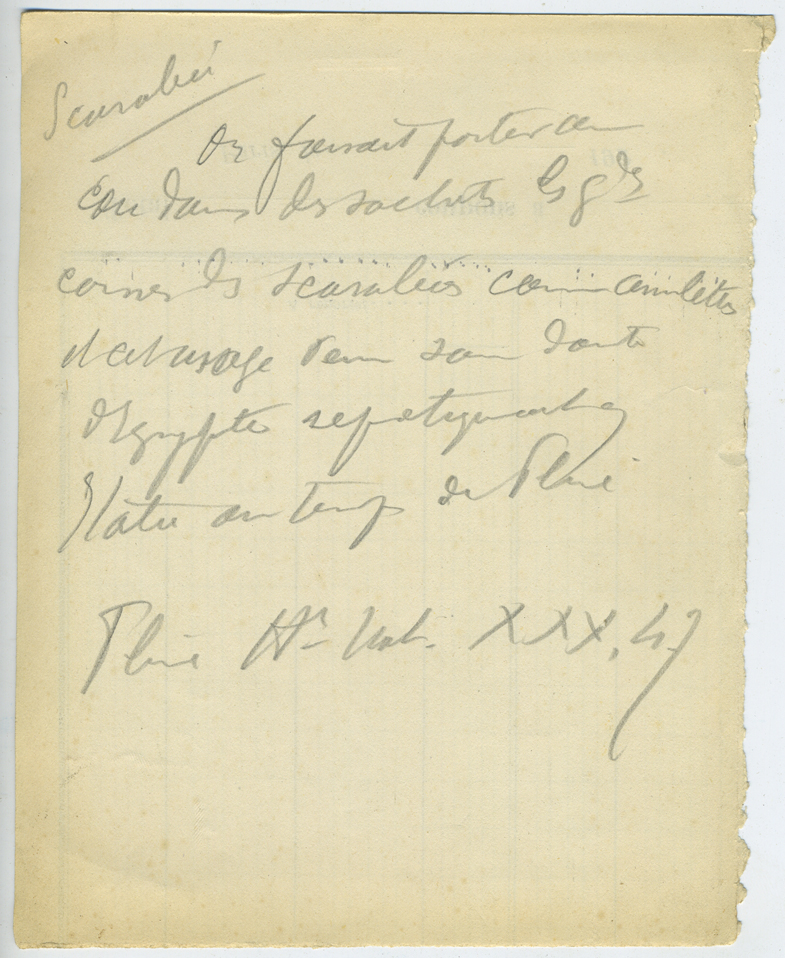 Scarabée
On faisait porter au
cou dans des sachets les gdes
cornes des scarabées comme amulettes
et cet usage venu sans doute
d'Egypte se pratiquait en
Italie au temps de Pline
Pline Hre Nat. XXX, 47